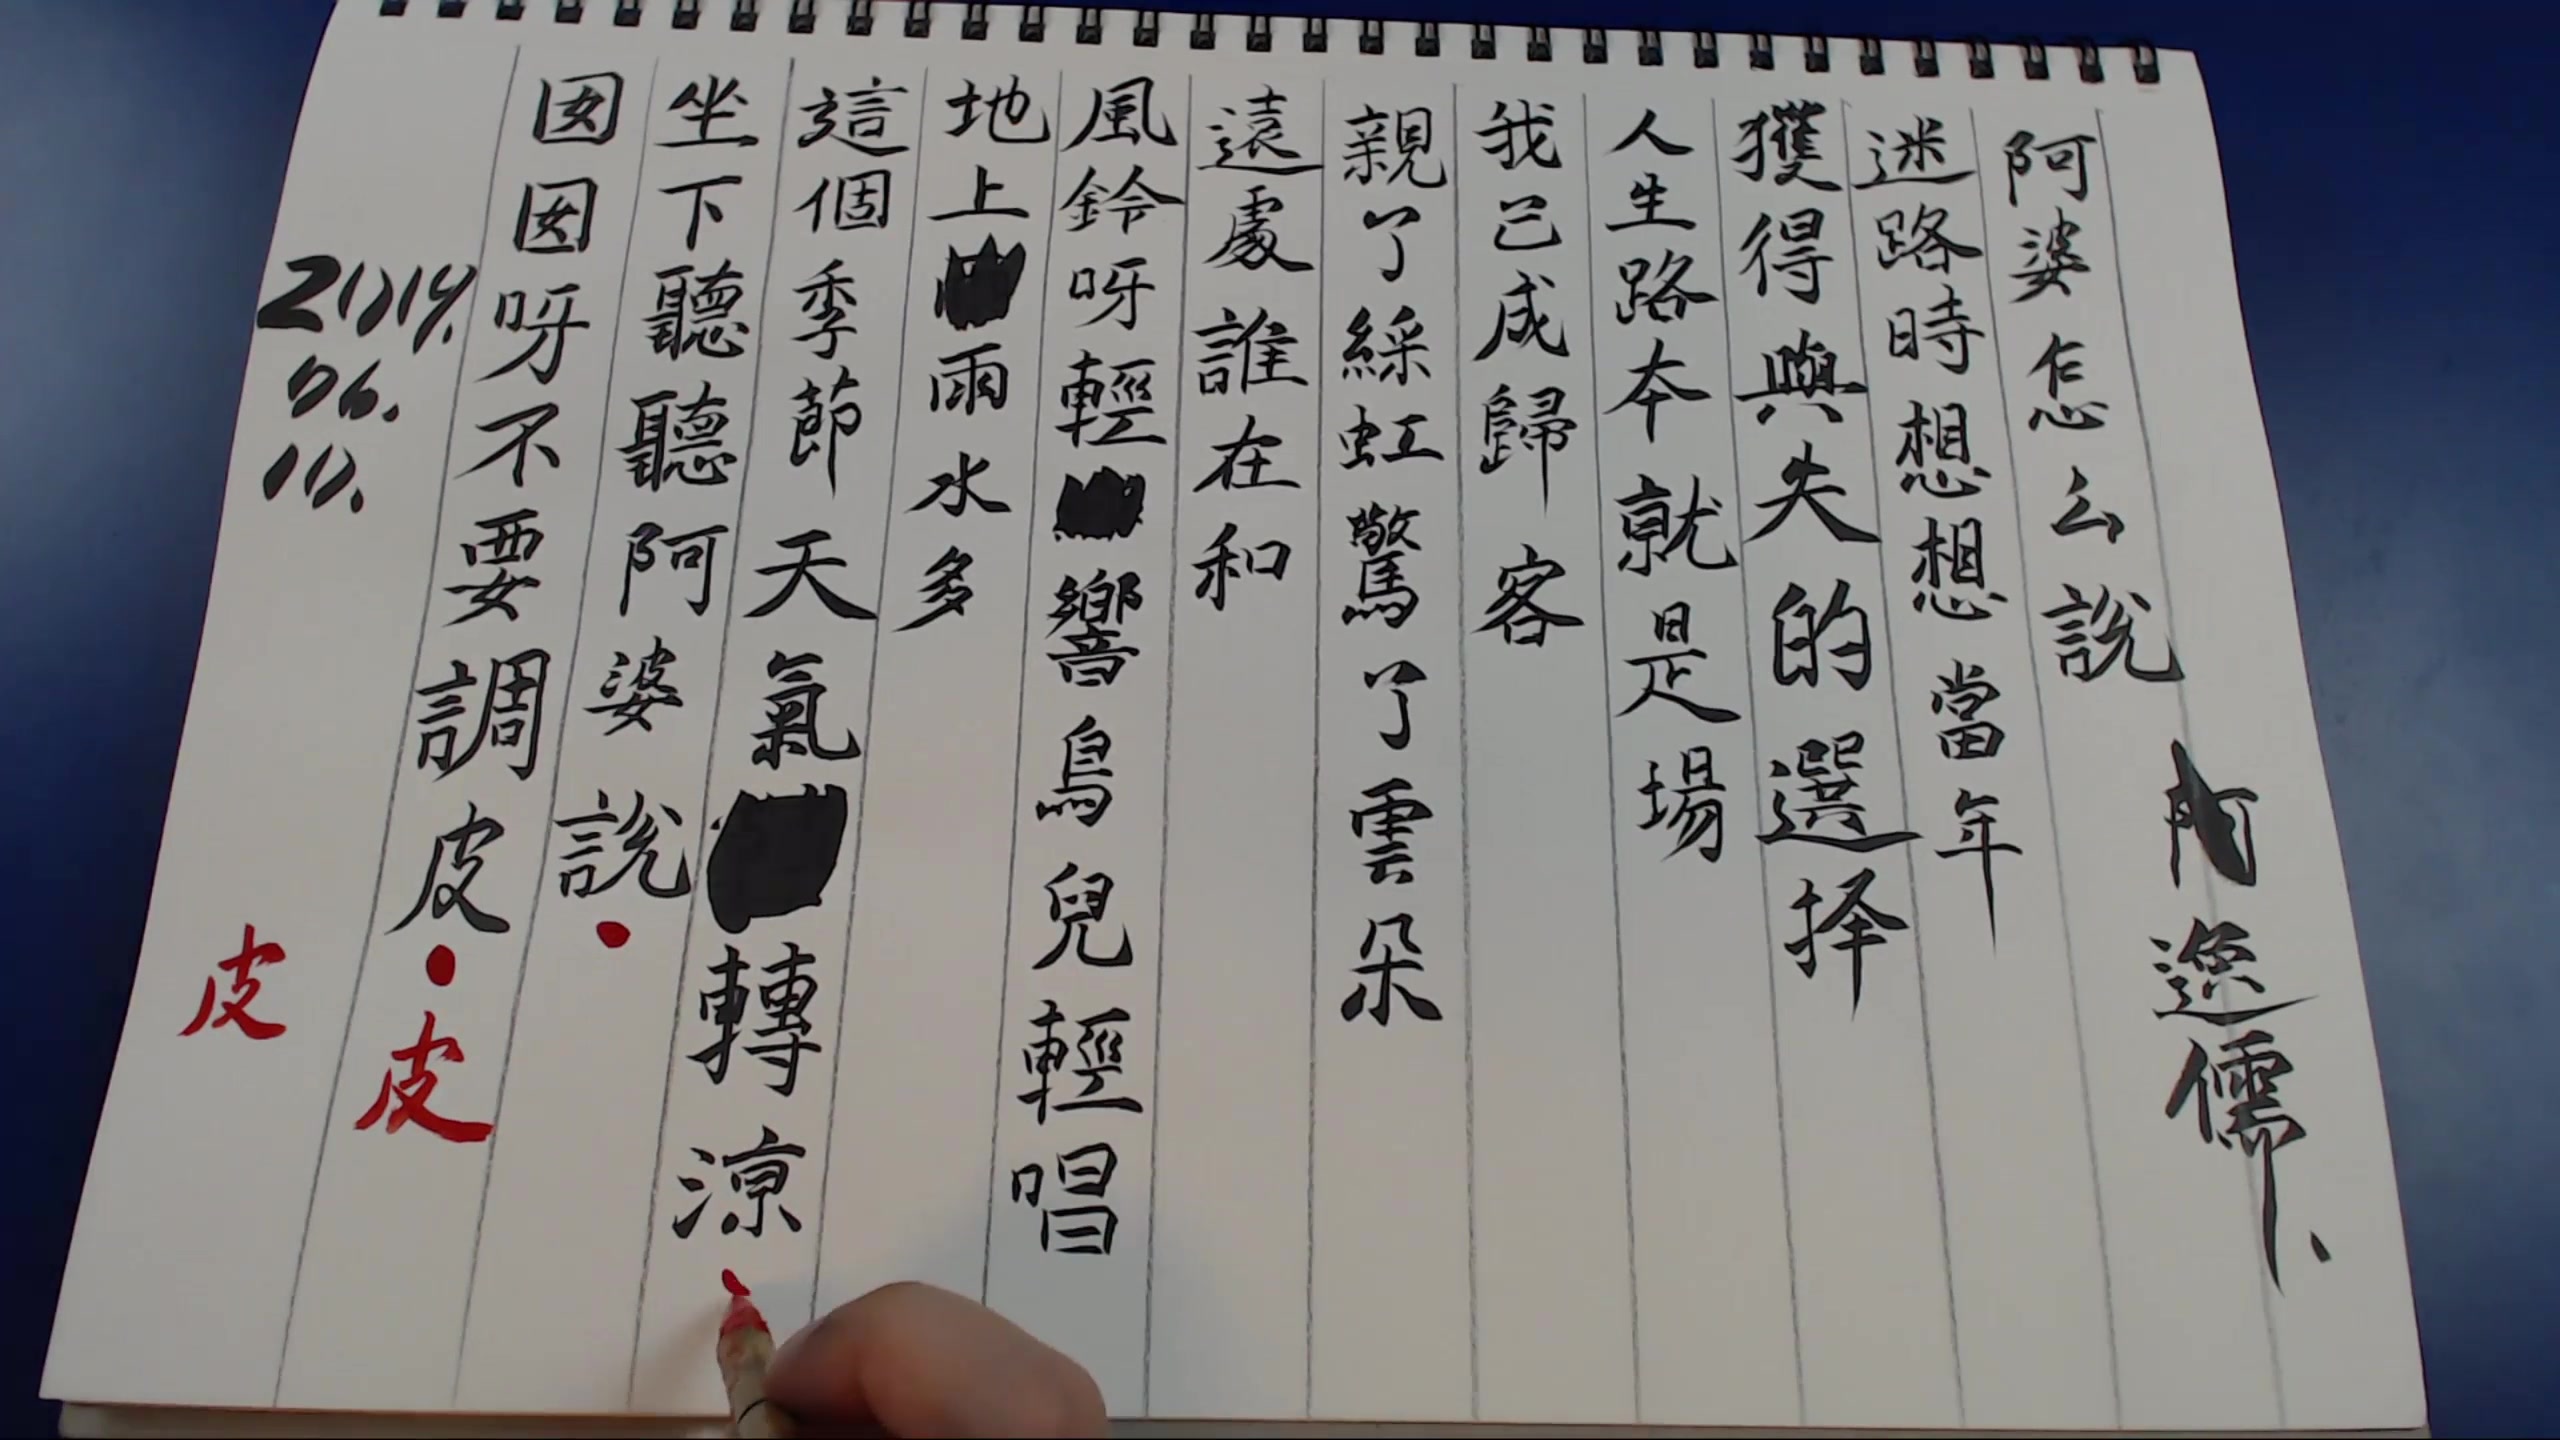 阿婆怎么說
阿逸儒、
迷路時想想當年
獲得與失的選择
人生路本就是場
我已成歸客
親了綵虹驚了雲朵
遠處誰在和
風鈴呀輕響鳥兒輕唱
地上雨水多
這個季節天氣轉涼
坐下聽聽阿婆說·
囡囡呀不要調皮·皮
2019.
06.
10.
皮